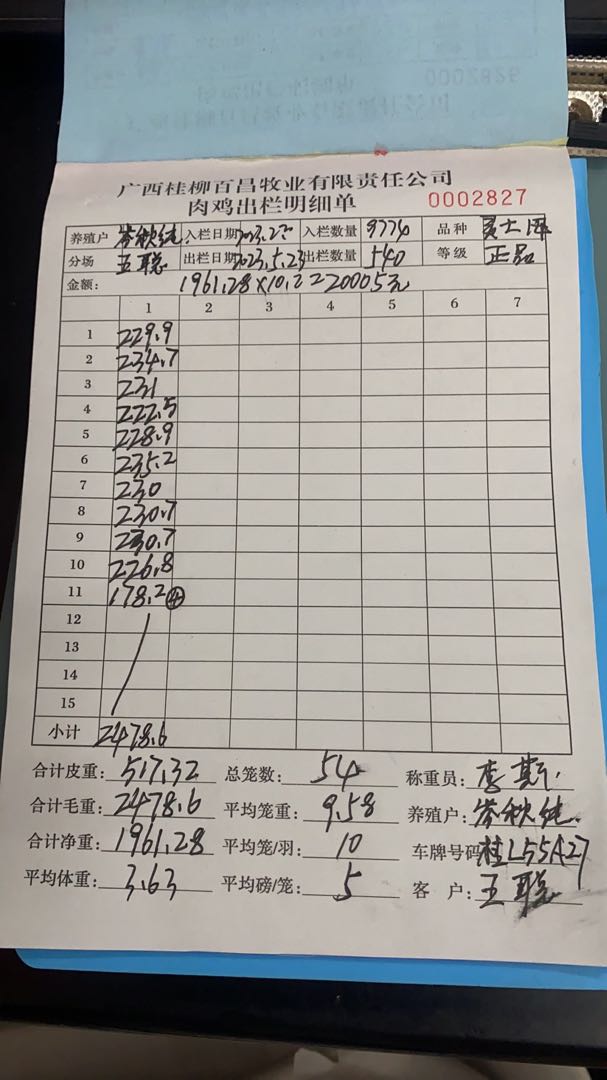 广西桂柳百昌牧业有限责任公司
肉鸡出栏明细单 0002827
养殖户 岑秋纯 入栏日期 2023.2 入栏数量 9774 品种
分场 王聪 出栏日期 2023.5.23 出栏数量 540 等级 正品
金额: 1961.28×10.2=20005元
1 2 3 4 5 6 7
1 229.9
2 234.7
3 231
4 222.5
5 228.9
6 235.2
7 230
8 230.7
9 230.7
10 226.8
11 178.2 ④
12
13
14
15
小计 2478.6
合计皮重: 517.32 总笼数: 54 称重员: 李斯
合计毛重: 2478.6 平均笼重: 9.58 养殖户: 岑秋纯
合计净重: 1961.28 平均笼/羽: 10 车牌号码 桂L55A27
平均体重: 3.63 平均磅/笼: 5 客 户: 王聪